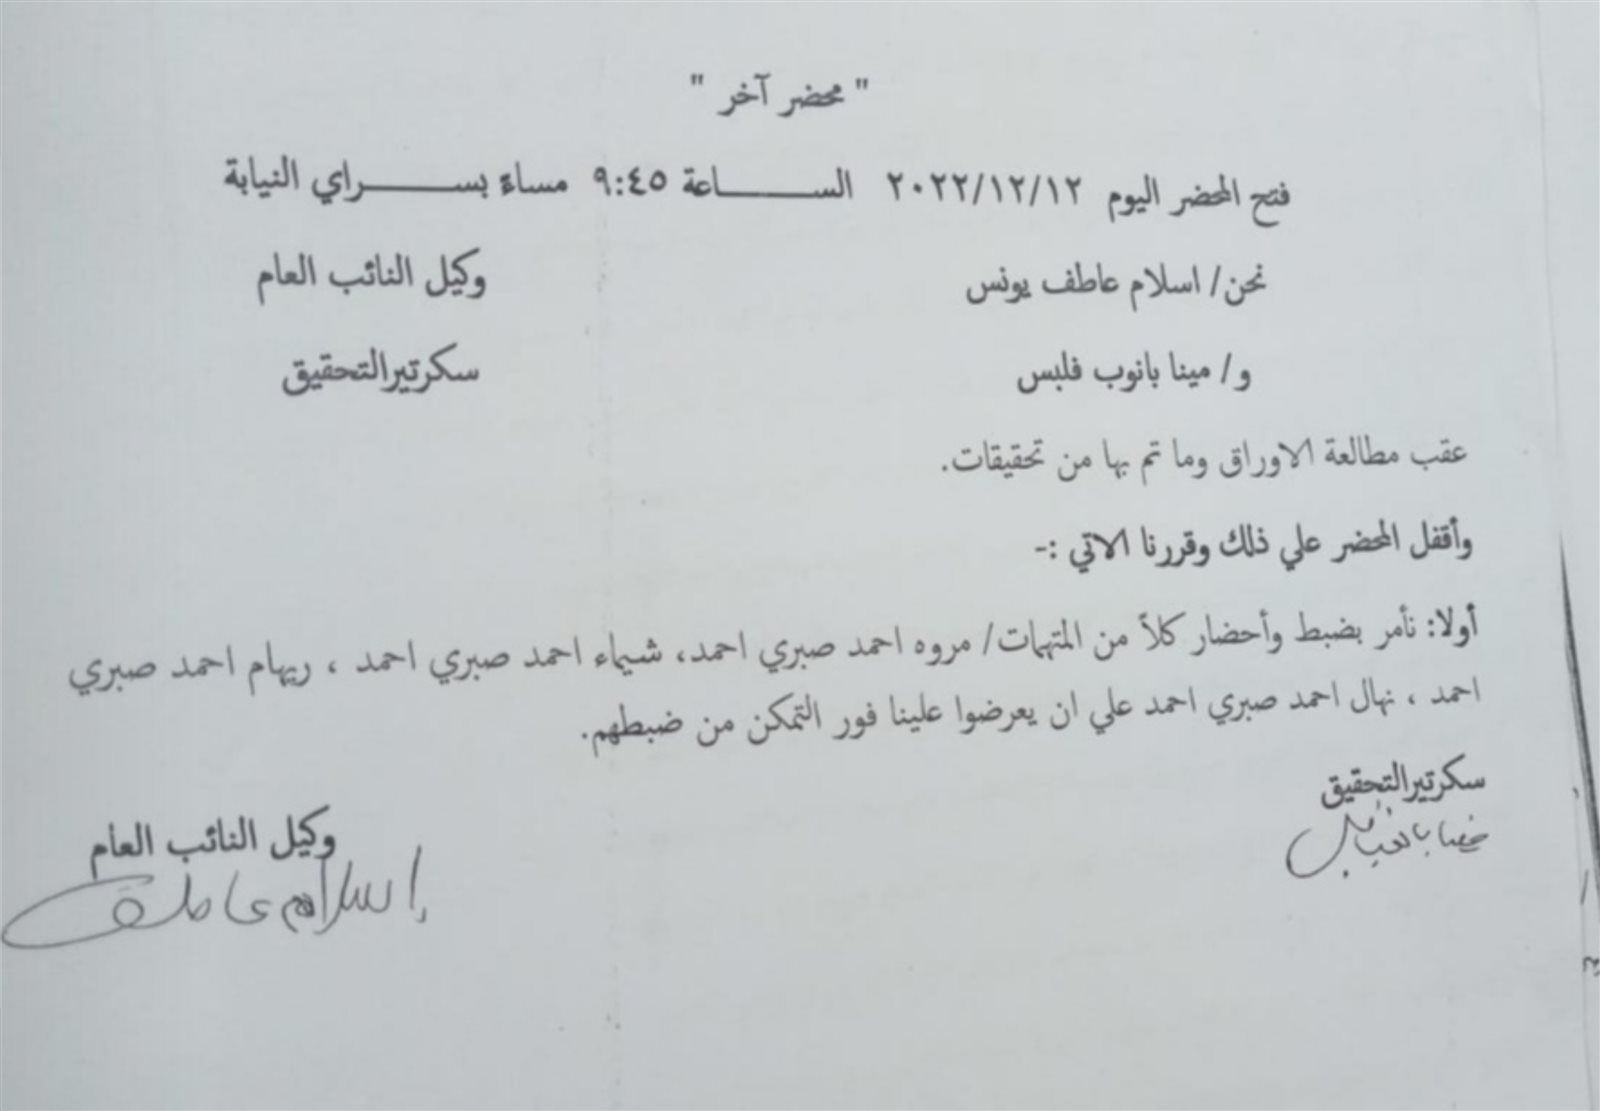 " محضر آخر "
فتح المحضر اليوم ٢٠٢٢/١٢/١٢ الســـــــاعة ٩:٤٥ مساءً بســـــــراي النيابة
نحن/ اسلام عاطف يونس وكيل النائب العام
و/ مينا بانوب فلبس سكرتيرالتحقيق
عقب مطالعة الاوراق وما تم بها من تحقيقات.
وأقفل المحضر علي ذلك وقررنا الاتي :-
أولا: نأمر بضبط وأحضار كلاً من المتهمات/ مروه احمد صبري احمد، شيماء احمد صبري احمد ، ريهام احمد صبري
احمد ، نهال احمد صبري احمد علي ان يعرضوا علينا فور التمكن من ضبطهم.
سكرتيرالتحقيق
وكيل النائب العام
إسلام عاطف